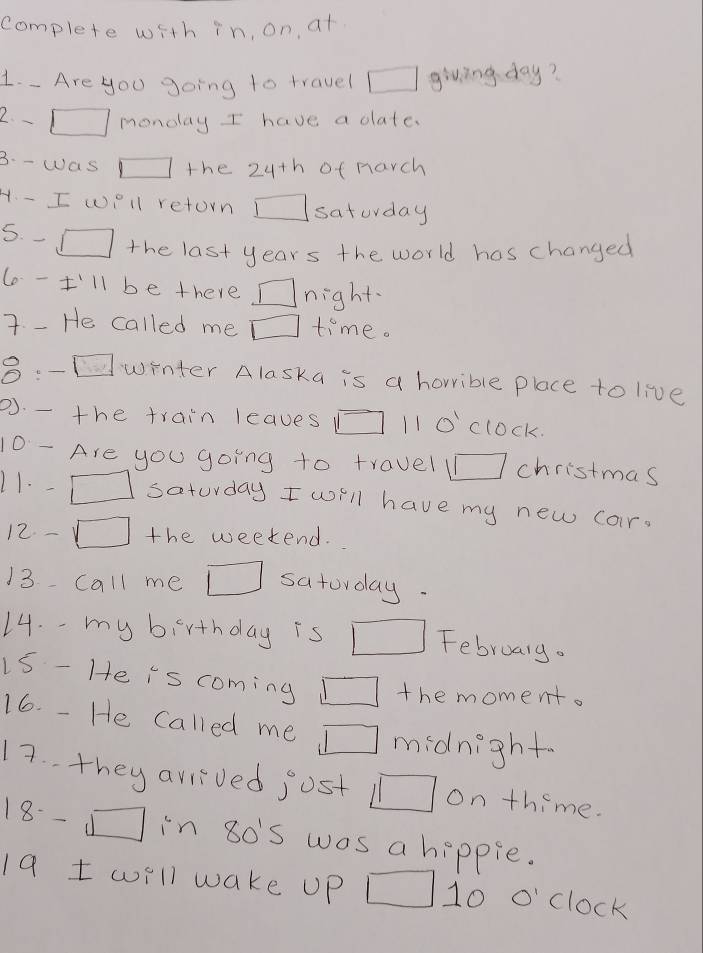 complete with in, on, at.
1.- Are you going to travel giving day?
2.- monday I have a date.
3.- was the 24th of march
4.- I will return saturday
5.- the last years the world has changed
6 - I'll be there night.
7.- He called me time.
8.- winter Alaska is a horrible place to live
9.- the train leaves 11 o'clock.
10 - Are you going to travel christmas
11.- saturday I will have my new car.
12.- the weekend.
13.- call me saturday.
14.- my birthday is February.
15 - He is coming the moment.
16.- He called me midnight.
17.- they arrived just on thime.
18.- in 80's was a hippie.
19 I will wake up 10 o'clock